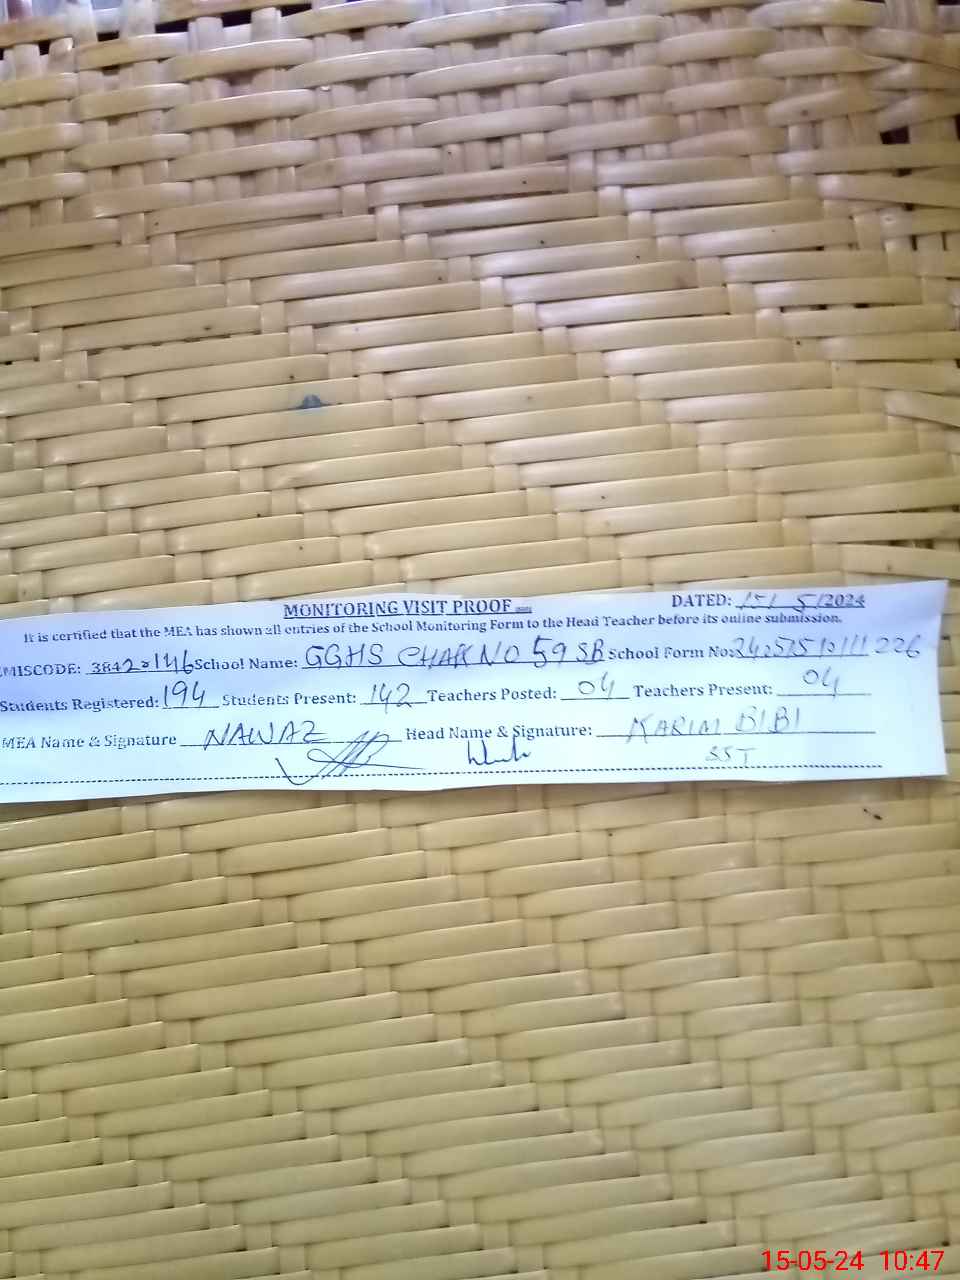 MONITORING VISIT PROOF DATED: 15/ 5/2024
It is certified that the MEA has shown all entries of the School Monitoring Form to the Head Teacher before its online submission.
EMISCODE: 38420146 School Name: GGHS CHAK NO 59 SB School Form No:
Students Registered: 194 Students Present: 142 Teachers Posted: 04 Teachers Present: 04
MEA Name & Signature NAWAZ Head Name & Signature: KARIM BIBI
SST
15-05-24 10:47